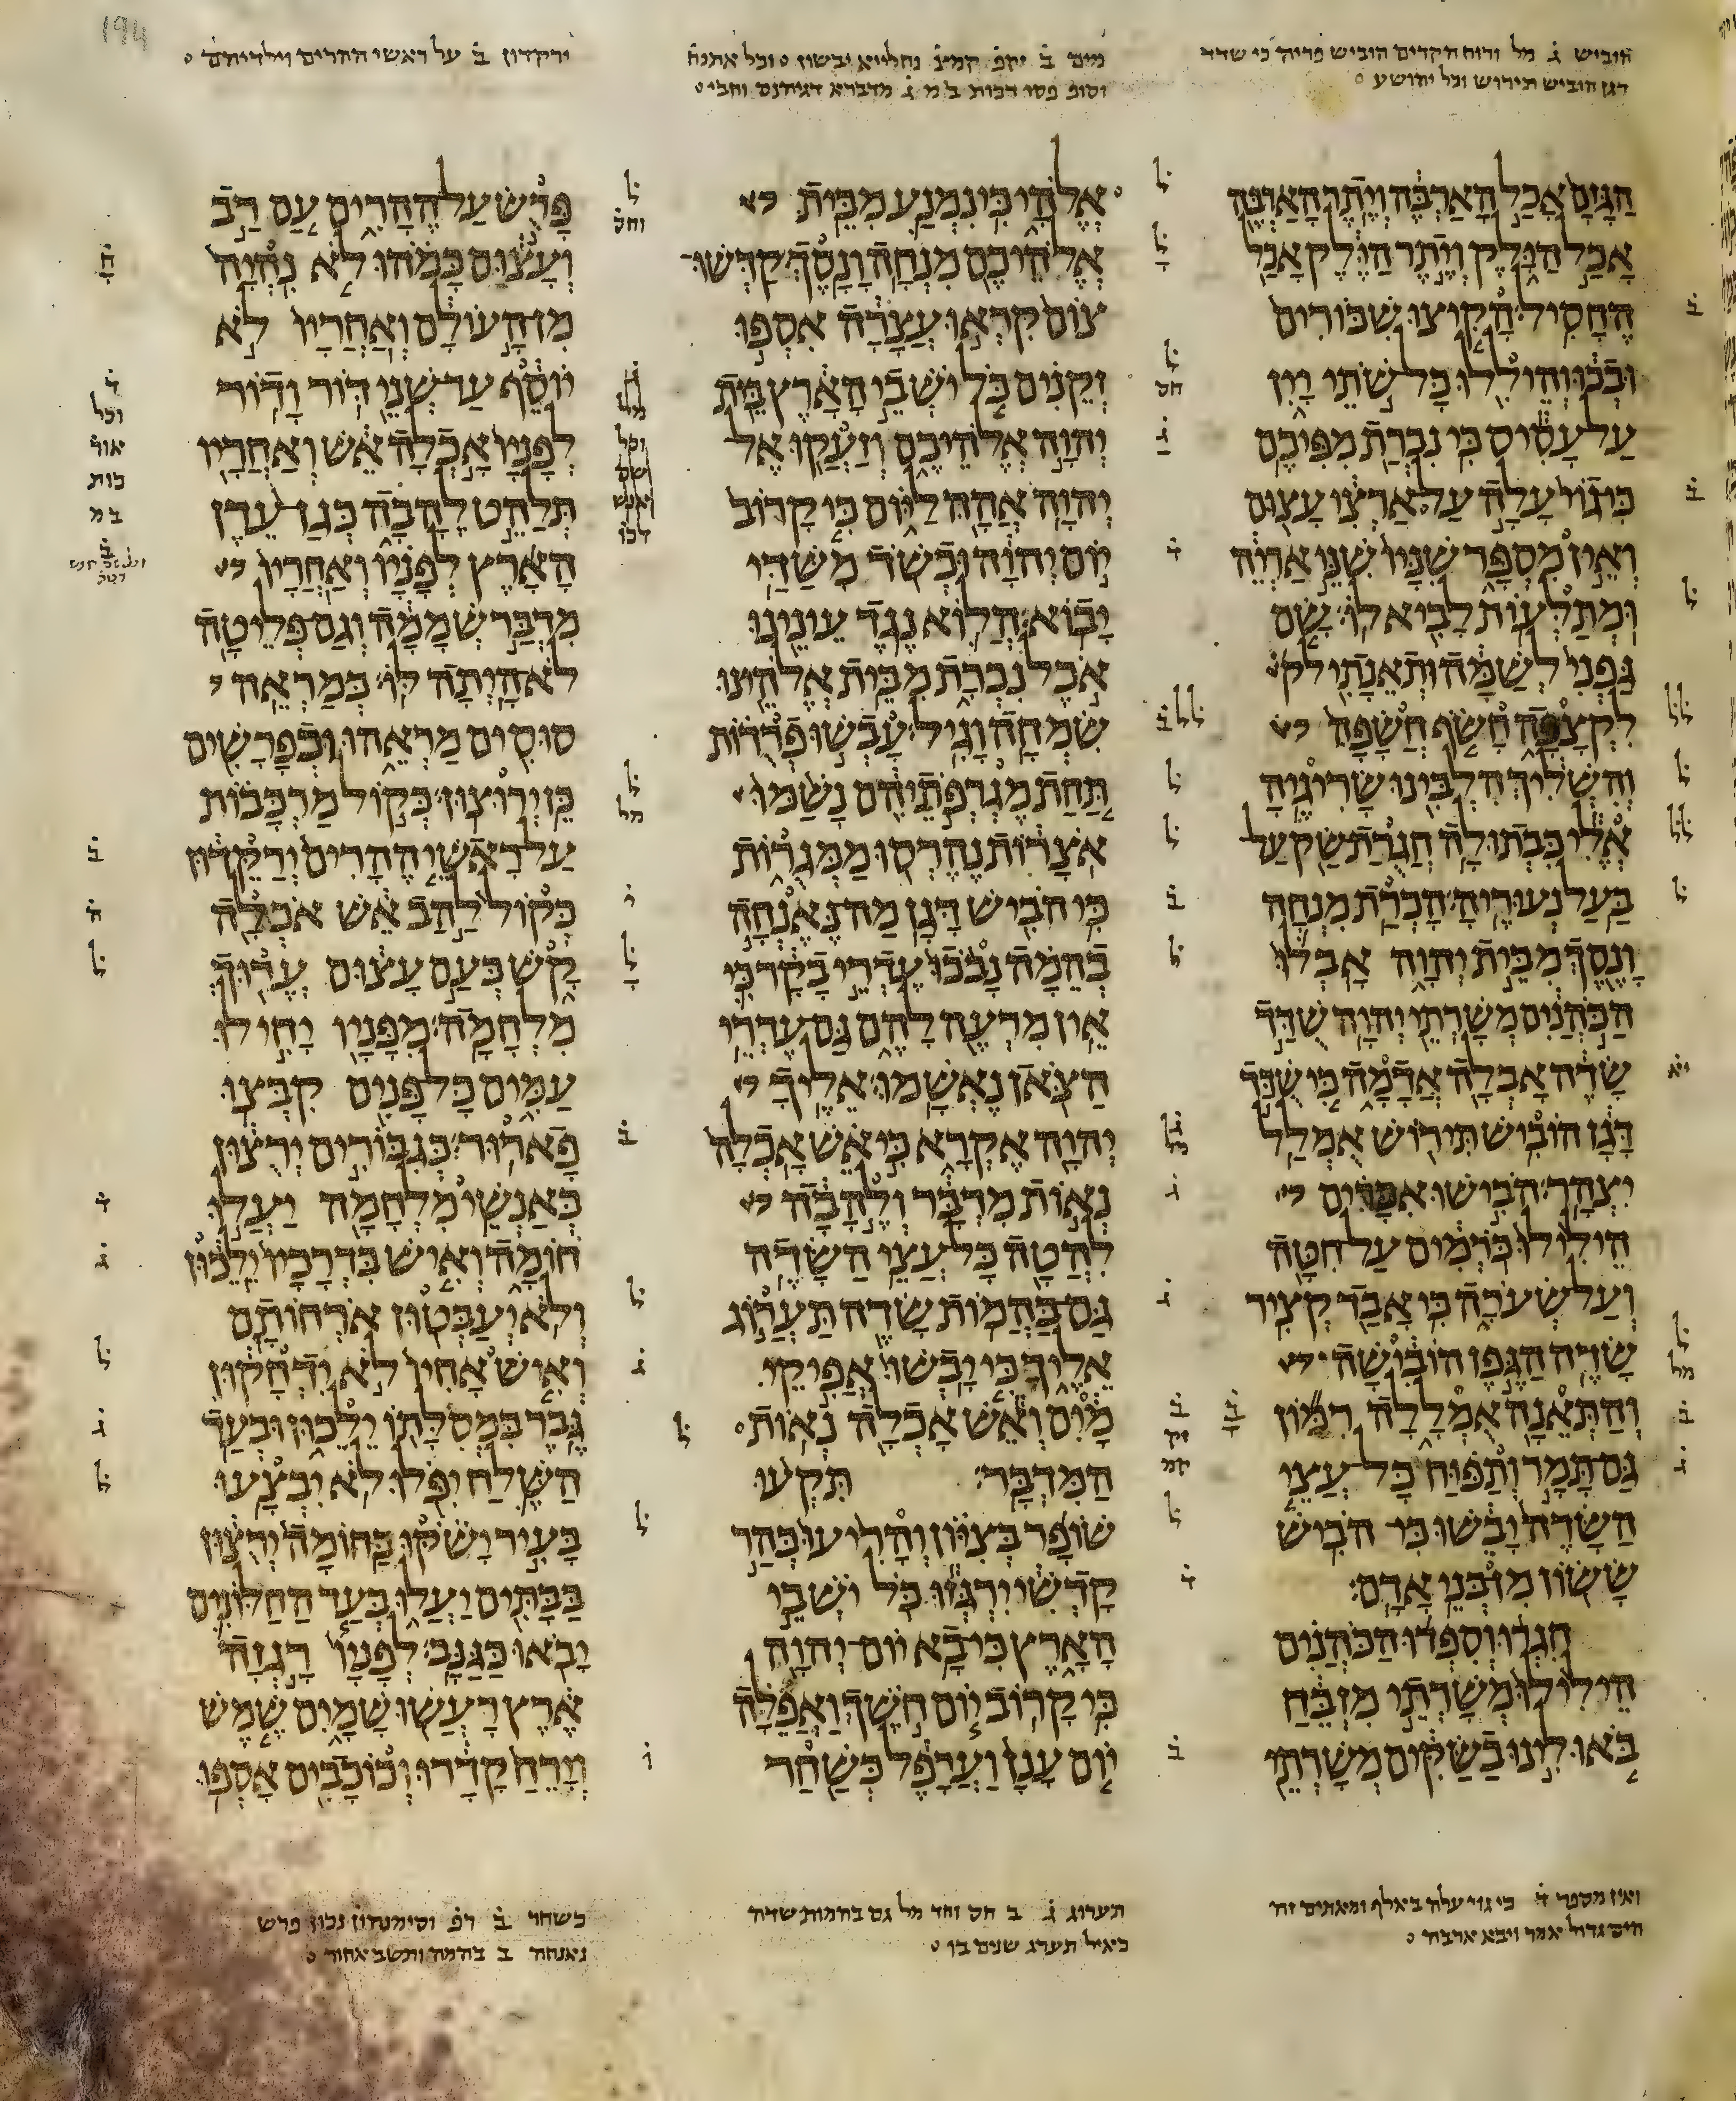 הוביש ג מל ורוח הקדים הוביש פריה כי שדד
דגן הוביש תירוש וכל יהושע
מים ב זקפ קמצ נחלייא יבשון וכל אתנח
וסופ פסו דכות ב מ ג מדברא דגיהנם וחבי
ירקדון ב על ראשי ההרים וילדיהם
הגזם אכל הארבה ויתר הארבה
אכל הילק ויתר הילק אכל
החסיל׃ הקיצו שכורים
ובכו והיללו כל שתי יין
על עסיס כי נכרת מפיכם
כי גוי עלה על ארצי עצום
ואין מספר שניו שני אריה
ומתלעות לביא לו׃ שם
גפני לשמה ותאנתי
לקצפה חשף חשפה
והשליך הלבינו שריגיה׃
אלי כבתולה חגרת שק על
בעל נעוריה׃ הכרת מנחה
ונסך מבית יהוה אבלו
הכהנים משרתי יהוה׃ שדד
שדה אבלה אדמה כי שדד
דגן הוביש תירוש אמלל
יצהר׃ הבישו אכרים
הילילו כרמים על חטה
ועל שערה כי אבד קציר
שדה׃ הגפן הובישה
והתאנה אמללה רמון
גם תמר ותפוח כל עצי
השדה יבשו כי הביש
ששון מן בני אדם׃
חגרו וספדו הכהנים
הילילו משרתי מזבח
באו לינו בשקים משרתי
אלהי כי נמנע מבית
אלהיכם מנחה ונסך׃ קדשו
צום קראו עצרה אספו
זקנים כל ישבי הארץ בית
יהוה אלהיכם וזעקו אל
יהוה׃ אהה ליום כי קרוב
יום יהוה וכשד משדי
יבוא׃ הלוא נגד עינינו
אכל נכרת מבית אלהינו
שמחה וגיל׃ עבשו פרדות
תחת מגרפתיהם נשמו
אצרות נהרסו ממגרות
כי הביש דגן׃ מה נאנחה
בהמה נבכו עדרי בקר כי
אין מרעה להם גם עדרי
הצאן נאשמו׃ אליך
יהוה אקרא כי אש אכלה
נאות מדבר ולהבה
להטה כל עצי השדה׃
גם בהמות שדה תערוג
אליך כי יבשו אפיקי
מים ואש אכלה נאות
המדבר׃ תקעו
שופר בציון והריעו בהר
קדשי ירגזו כל ישבי
הארץ כי בא יום יהוה
כי קרוב׃ יום חשך ואפלה
יום ענן וערפל כשחר
פרש על ההרים עם רב
ועצום כמהו לא נהיה
מן העולם ואחריו לא
יוסף עד שני דור ודור׃
לפניו אכלה אש ואחריו
תלהט להבה כגן עדן
הארץ לפניו ואחריו
מדבר שממה וגם פליטה
לא היתה לו׃ כמראה
סוסים מראהו וכפרשים
כן ירוצון׃ כקול מרכבות
על ראשי ההרים ירקדון
כקול להב אש אכלה
קש כעם עצום ערוך
מלחמה׃ מפניו יחילו
עמים כל פנים קבצו
פארור׃ כגבורים ירצון
כאנשי מלחמה יעלו
חומה ואיש בדרכיו ילכון
ולא יעבטון ארחותם׃
ואיש אחיו לא ידחקון
גבר במסלתו ילכון ובעד
השלח יפלו לא יבצעו׃
בעיר ישקו בחומה ירצון
בבתים יעלו בעד החלונים
יבאו כגנב׃ לפניו רגזה
ארץ רעשו שמים שמש
וירח קדרו וכוכבים אספו
ואין מספר ד כי גוי עלה ביאלף ומאתים זה
הים גדול אמר ויבא ארבה
תערוג ג ב חס וחד מל גם בהמות שדה
כאיל תערג שנים בו
כשחר ב רפ וסימנהון נכון פרש
נאנחה ב בהמה ותשב אחור